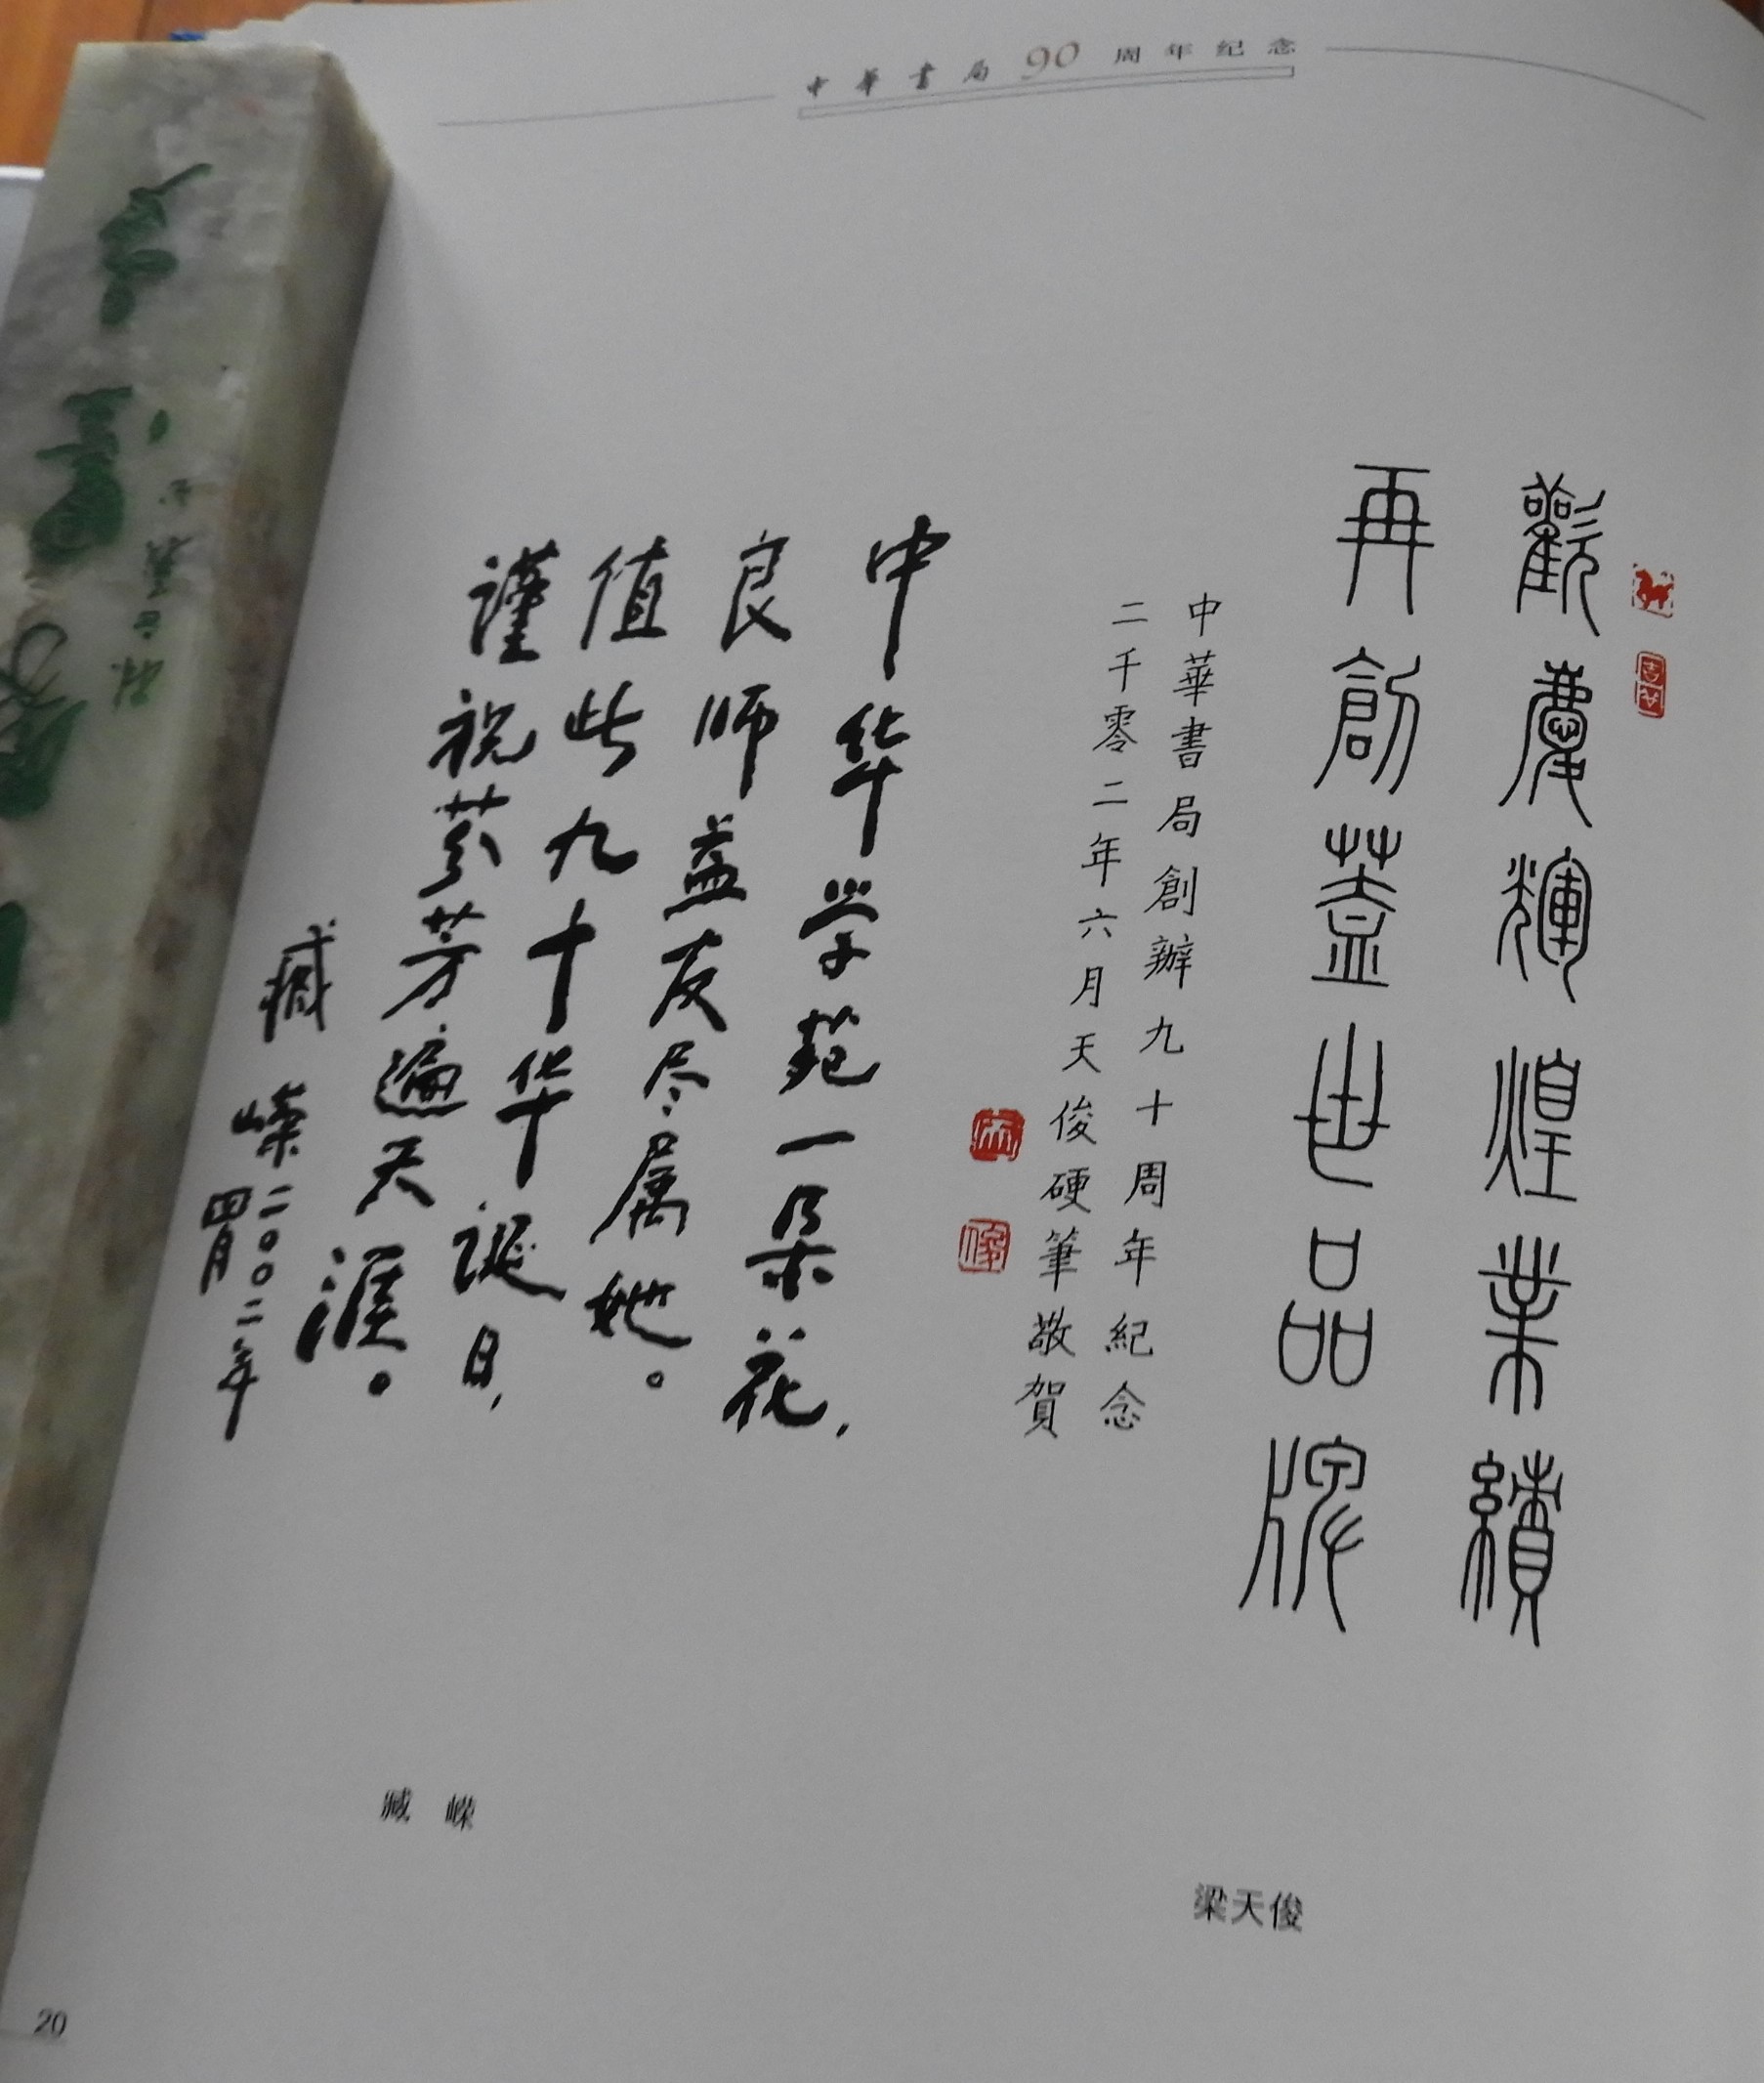 中華書局90周年纪念
歡慶輝煌業績
再創蓋世品牌
中華書局創辦九十周年紀念
二千零二年六月天俊硬筆敬賀
中华学苑一朵花，
良师益友尽属她。
值此九十华诞日，
谨祝芬芳遍天涯。
臧嵘二〇〇二年
四月
臧嵘
梁天俊
20